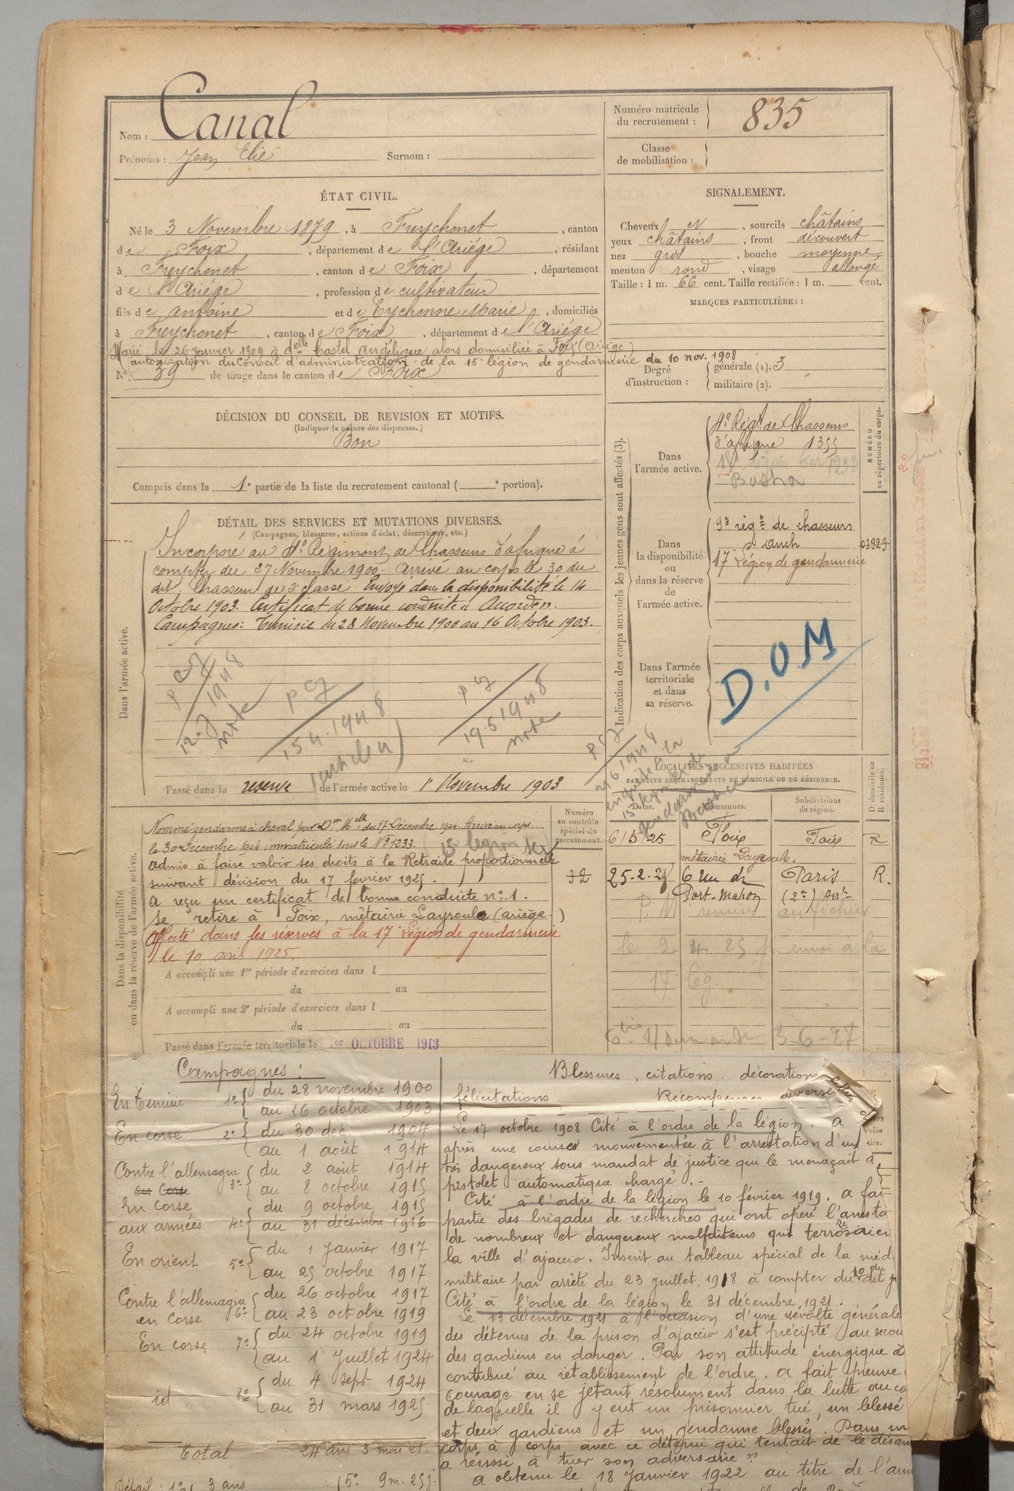 Nom : Canal
Prénoms : Jean Elie Surnom :
Numéro matricule du recrutement : 835
Classe de mobilisation :
ÉTAT CIVIL.
Né le 3 Novembre 1879, à Freychenet, canton
de Foix, département de l'Ariège, résidant
à Freychenet, canton de Foix, département
de l'Ariège, profession de cultivateur
fils de antoine et de Eychenne Marie, domiciliés
à Freychenet, canton de Foix, département de l'Ariège
Marié le 26 Janvier 1909 à delle Castel Angélique, alors domiciliée à Foix (Ariège)
autorisation du Conseil d'administration de la 15e légion de gendarmerie du 10 nov. 1908
N° 39 de tirage dans le canton de Foix
SIGNALEMENT.
Cheveux, sourcils châtains
yeux châtains, front découvert
nez gros, bouche moyenne
menton rond, visage allongé
Taille : 1 m. 66 cent. Taille rectifiée : 1 m. cent.
MARQUES PARTICULIÈRES :
Degré d'instruction : générale (1). 3
militaire (2).
DÉCISION DU CONSEIL DE REVISION ET MOTIFS.
(Indiquer la nature des dispenses.)
Bon
Compris dans la 1e partie de la liste du recrutement cantonal ( e portion).
DÉTAIL DES SERVICES ET MUTATIONS DIVERSES.
(Campagnes, blessures, actions d'éclat, décorations, etc.)
Dans l'armée active.
Incorporé au 4e Régiment de Chasseurs d'afrique à
compter du 27 Novembre 1900. Arrivé au corps le 30 du
dit, Chasseur de 2e classe. Envoyé dans la disponibilité le 14
Octobre 1903. Certificat de bonne conduite "Accordé".
Campagnes : Tunisie du 28 Novembre 1900 au 16 Octobre 1903.
12-7 1948
note
15 4 1948
19 5 1948
note
Passé dans la réserve de l'armée active le 1er Novembre 1903
Indication des corps auxquels les jeunes gens sont affectés (3).
NUMÉRO au répertoire du corps.
Dans l'armée active.
4e Régt de Chasseurs
d'afrique 1355
Bastia
Dans la disponibilité ou dans la réserve de l'armée active.
9e régt de chasseurs
à auch 03929
17e Légion de gendarmerie
Dans l'armée territoriale et dans sa réserve.
D.O.M
LOCALITÉS SUCCESSIVES HABITÉES
PAR SUITE DE CHANGEMENTS DE DOMICILE OU DE RÉSIDENCE.
Dates. Communes. Subdivisions de région. D domicile ou R résidence.
6/5/25 Foix Foix R
métairie Layroule.
6 rue de Paris R.
Port-Mahon (2e) Arrt
Numéro au contrôle spécial du recrutement.
32
Dans la disponibilité ou dans la réserve de l'armée active.
Nommé gendarme à cheval par Don Mlle du 17 Décembre 1904. Arrivé au corps
le 30 Décembre 1904 immatriculé sous le N° 1233.
15e légion
admis à faire valoir ses droits à la Retraite proportionnelle
suivant décision du 17 février 1925.
a reçu un certificat de bonne conduite n° 1.
se retire à Foix, métairie Layroule (ariège)
Affecté dans les réserves à la 17e Légion de gendarmerie
le 10 avril 1925.
A accompli une 1re période d'exercices dans l
du au
A accompli une 2e période d'exercices dans l
du au
Passé dans l'armée territoriale le 1er OCTOBRE 1913
17e lég.
Campagnes :
En Tunisie 1e du 28 novembre 1900
au 16 octobre 1903
En corse 2e du 30 déc 1904
au 1 août 1914
Contre l'allemagne 3e du 2 août 1914
en Corse au 8 octobre 1915
En corse
aux armées 4e du 9 octobre 1915
au 31 décembre 1916
En orient 5e du 1 Janvier 1917
au 25 octobre 1917
Contre l'allemagne
en corse 6e du 26 octobre 1917
au 23 octobre 1919
En corse 7e du 24 octobre 1919
au 1 Juillet 1924
id 8e du 4 sept 1924
au 31 mars 1925
Total 24 ans 3 mois 21
Détail : 3 ans (5e 9m. 25j.
Blessures, citations, décorations
félicitations Récompenses diverses
Le 17 octobre 1908 Cité à l'ordre de la légion. a
après une course mouvementée à l'arrestation d'un
très dangereux sous mandat de justice qui le menaçait d'
pistolet automatique chargé. -
Cité à l'ordre de la légion le 10 février 1919. a fait
partie des brigades de recherches qui ont opéré l'arresta
de nombreux et dangereux malfaiteurs qui terrorisaient
la ville d'ajaccio. Inscrit au tableau spécial de la méd.
militaire par arrêté du 23 juillet 1918 à compter du dit j
Cité à l'ordre de la légion le 31 décembre 1921.
Le 13 décembre 1921 à l'occasion d'une révolte générale
des détenus de la prison d'ajaccio s'est précipité au secou
des gardiens en danger. Par son attitude énergique a
contribué au rétablissement de l'ordre. a fait preuve
courage en se jetant résolument dans la lutte au co
de laquelle il y eut un prisonnier tué, un blessé
et deux gardiens et un gendarme blessés. Dans un
corps à corps avec ce détenu qui tentait de le désarm
a réussi à tuer son adversaire
a obtenu le 18 janvier 1922 au titre de l'ann